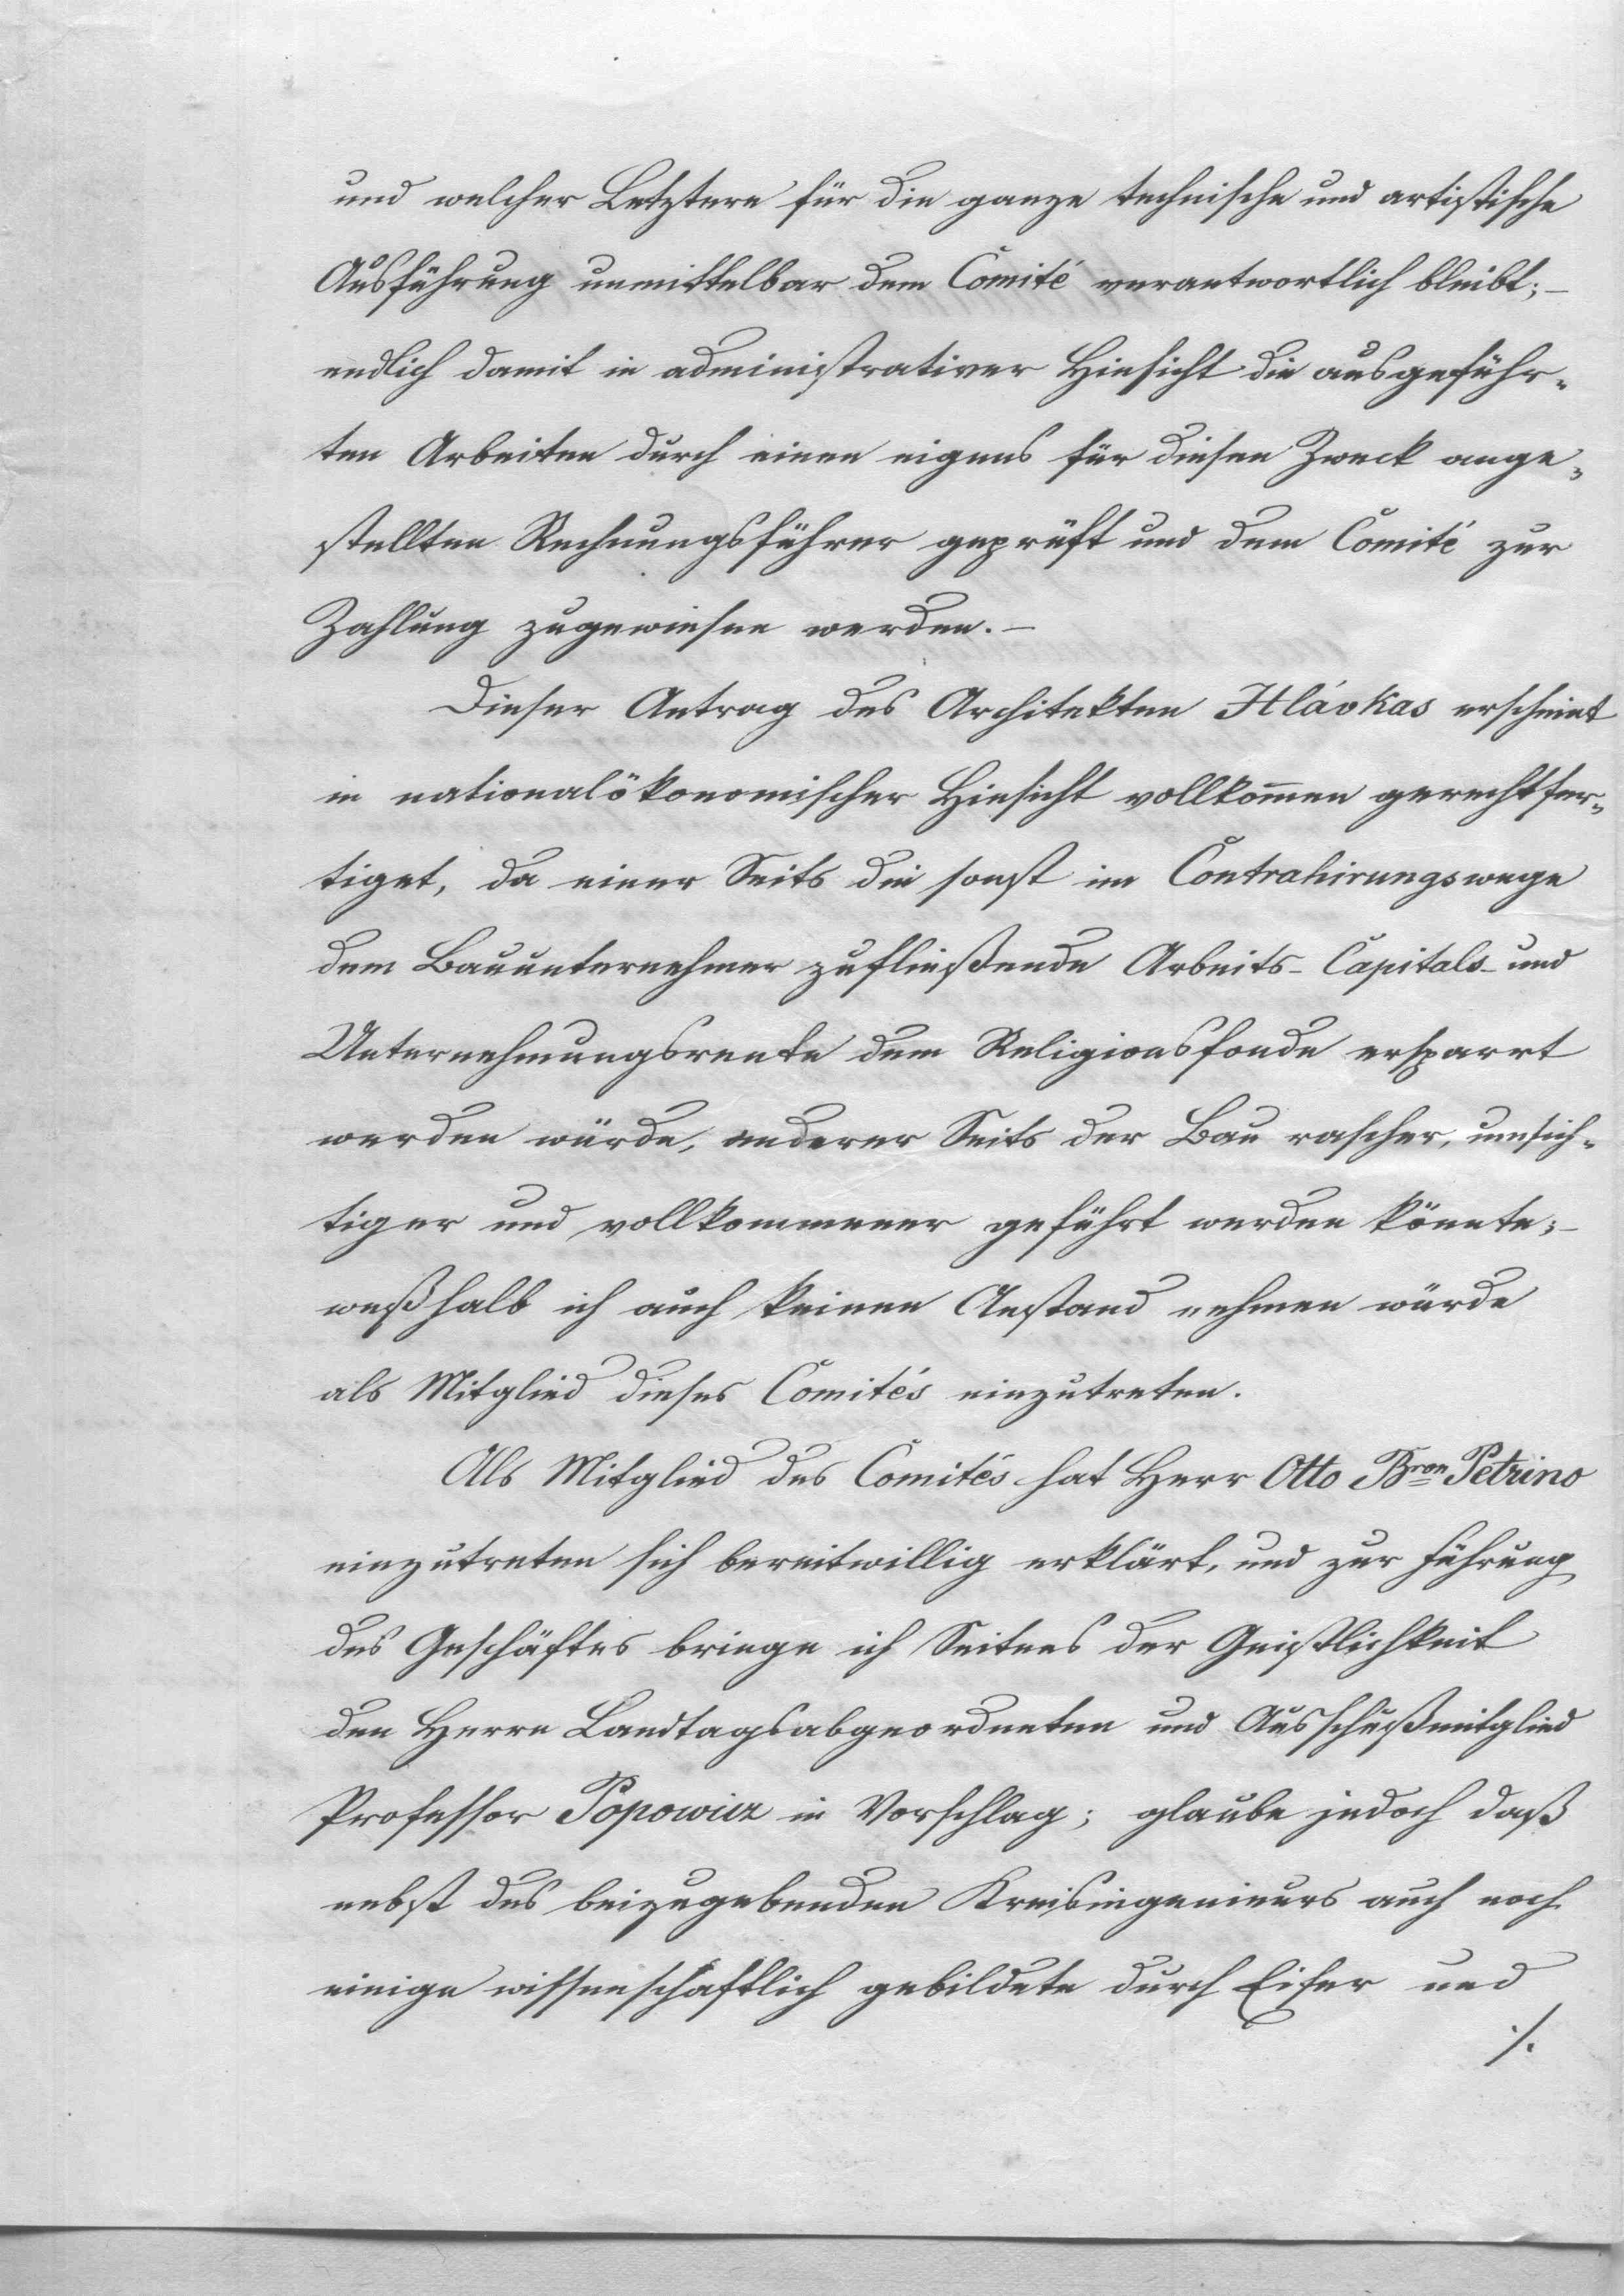 und welcher Letztere für die ganze technische und artistische
Ausführung unmittelbar dem Comité verantwortlich bleibt;–
endlich damit in administrativer Hinsicht die ausgeführ„
ten Arbeiten durch einen eigens für diesen Zweck ange„
stellten Rechnungsführer geprüft und dem Comité zur
Zahlung zugewiesen werden.–
Dieser Antrag des Architekten Hlávkas erscheint
in nationalökonomischer Hinsicht vollkom̅en gerechtfer„
tiget, da einer Seits die sonst im Contrahirungswege
dem Bauunternehmer zufließende Arbeits- Capitals- und
Unternehmungsrente dem Religionsfonde erspart
werden würde, anderer Seits der Bau rascher, umsich„
tiger und vollkommener geführt werden könnte;–
weßhalb ich auch keinen Anstand nehmen würde
als Mitglied dieses Comités einzutreten.
Als Mitglied des Comités hat Herr Otto Bron Petrino
einzutreten sich bereitwillig erklärt, und zur Führung
des Geschäftes bringe ich Seitens der Geistlichkeit
den Herrn Landtagsabgeordneten und Ausschußmitglied
Professor Popowicz in Vorschlag; glaube jedoch daß
nebst des beizugebenden Kreisingenieurs auch noch
einige wissenschaftlich gebildete durch Eifer und
./.